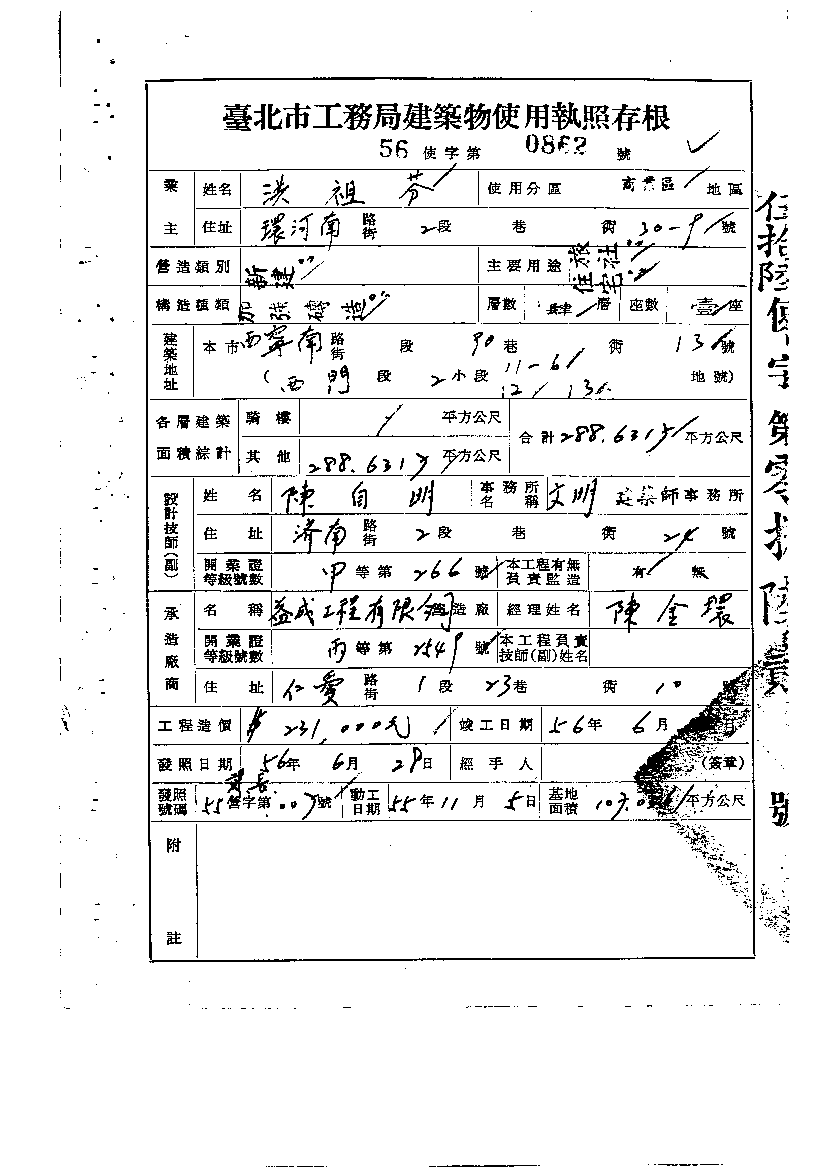 臺北市工務局建築物使用執照存根
56 使字第 0862 號
業主 姓名 洪祖芬 使用分區 商業區 地區
住址 環河南 路街 2段 巷 衖 30-9 號
營造類別 新建 主要用途 旅社 住宅
構造種類 加強磚造 層數 肆 層 座數 壹 座
建築地址 本市 西寧南 路街 段 90 巷 衖 13 號
(西門 段 2 小段 11-6 12 13 地號)
各層建築面積綜計 騎樓 平方公尺 合計 288.6315 平方公尺
其他 288.6315 平方公尺
設計技師(副) 姓名 陳自明 事務所名稱 文明 建築師事務所
住址 濟南 路街 2段 巷 衖 24 號
開業證等級號數 甲等第 266 號 本工程有無負責監造 有 無
承造廠商 名稱 益成工程有限公司 營造廠 經理姓名 陳金環
開業證等級號數 丙等第 2549 號 本工程負責技師(副)姓名
住址 仁愛 路街 1段 23巷 衖 10
工程造價 $231,000元 竣工日期 56年 6月 日
發照日期 56年 6月 28日 經手人 (簽章)
發照號碼 55營字第 號 動工日期 55年11月5日 基地面積 平方公尺
附註
伍拾陸使字第零捌陸貳號